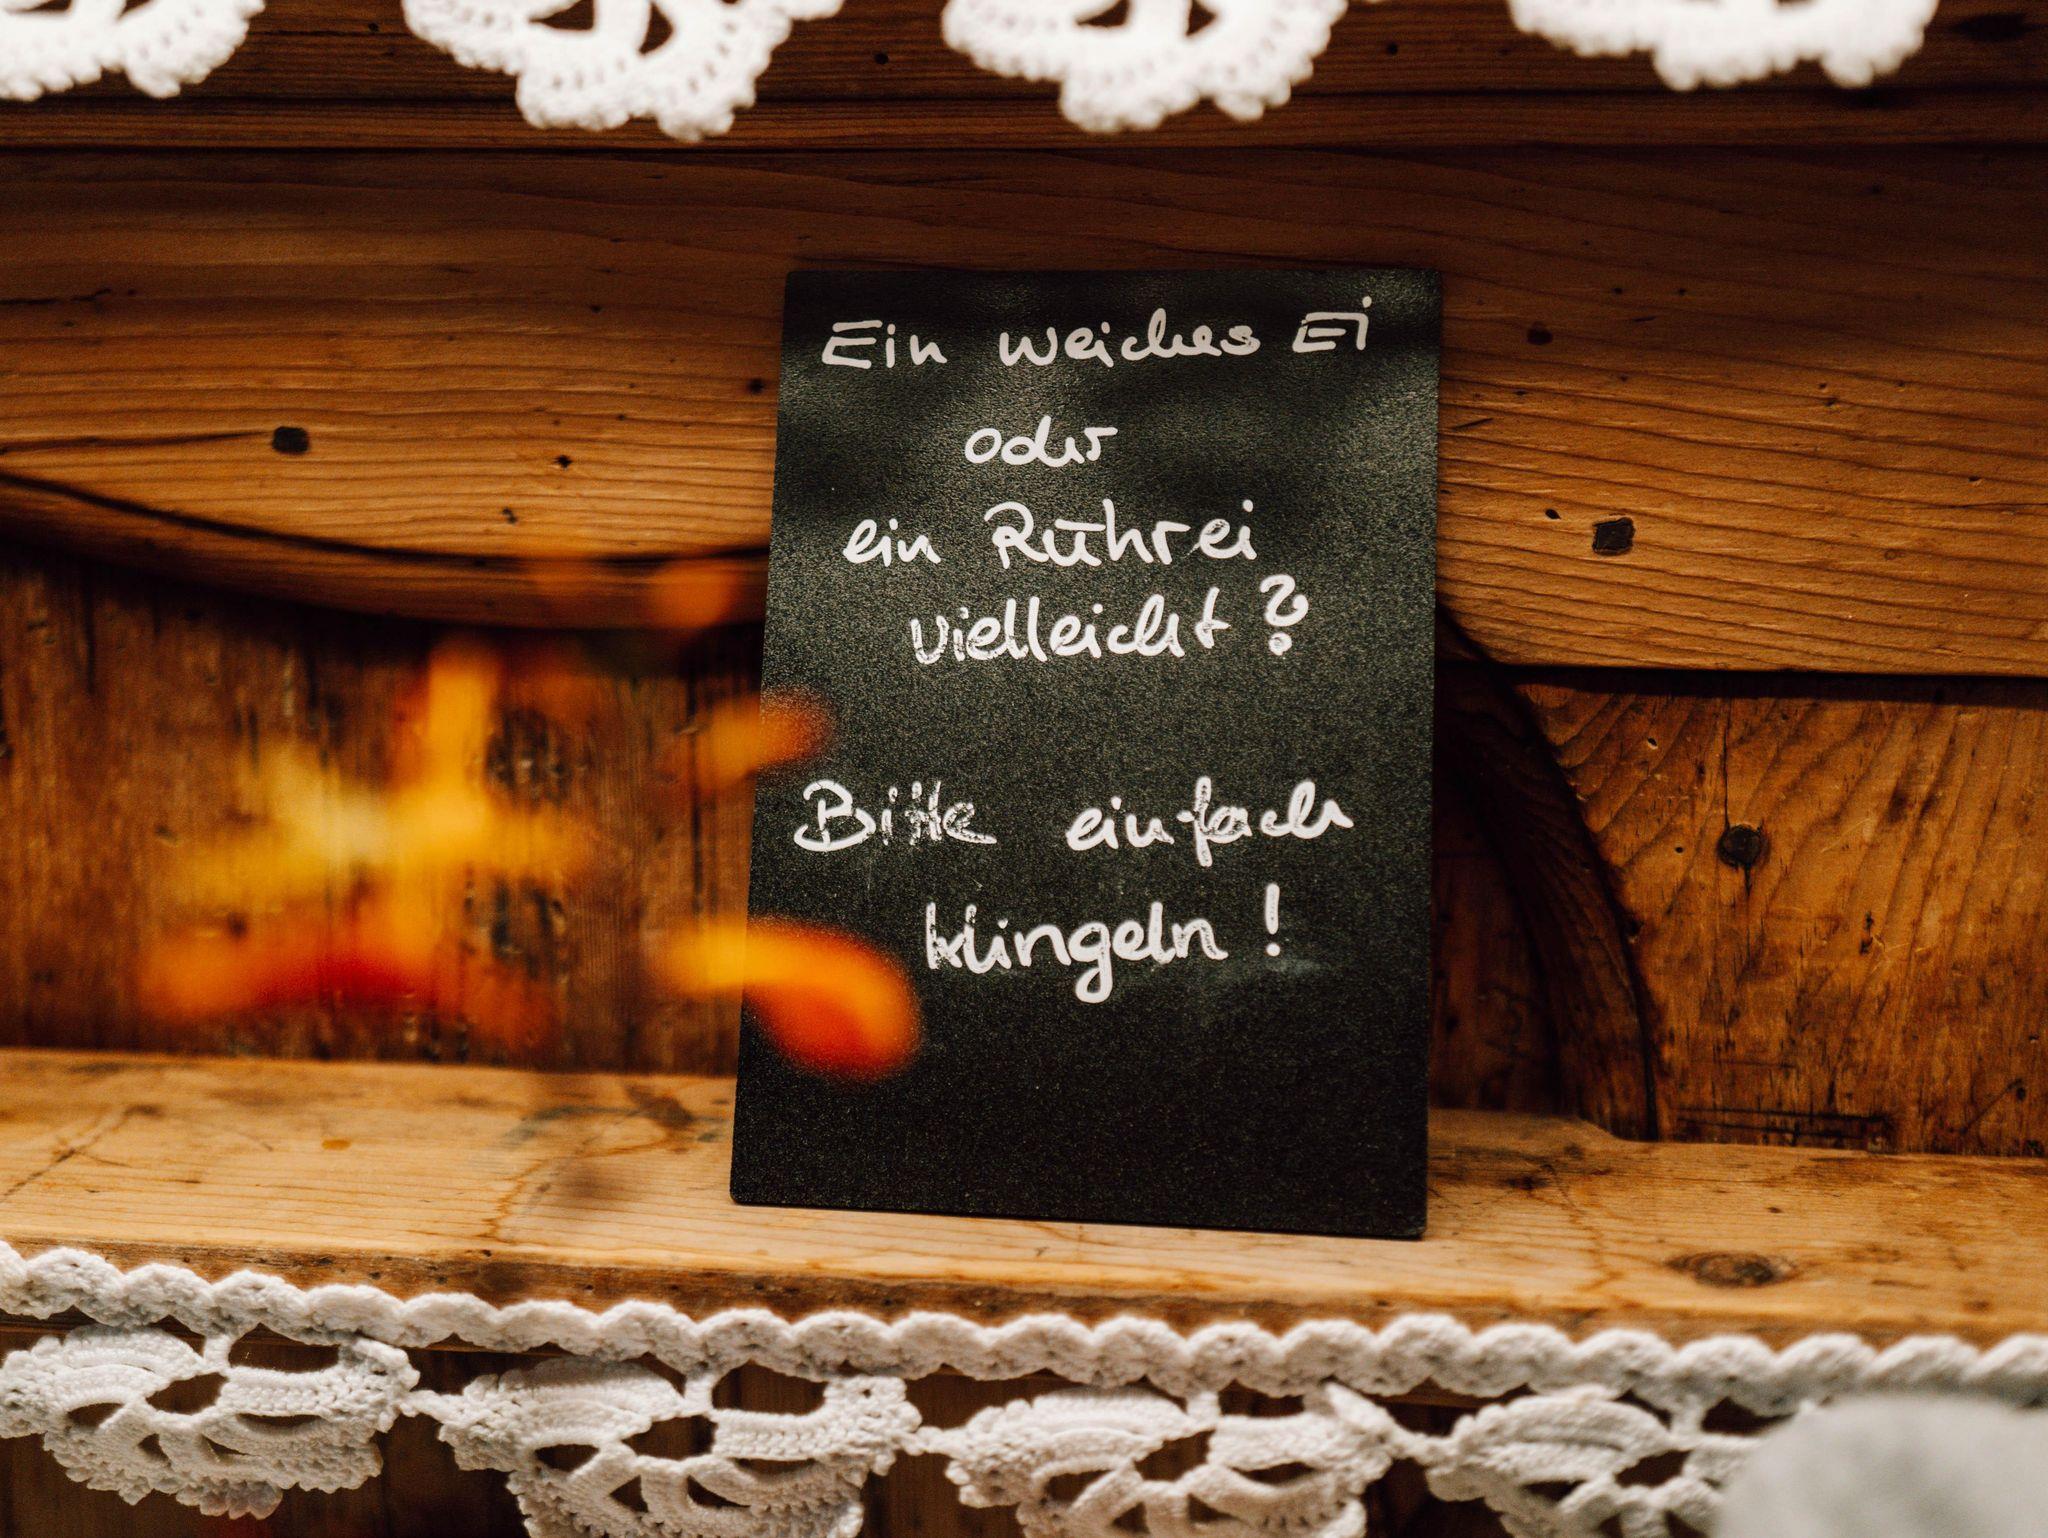 Ein weiches Ei
oder
ein Rührei
vielleicht?
Bitte einfach
klingeln!